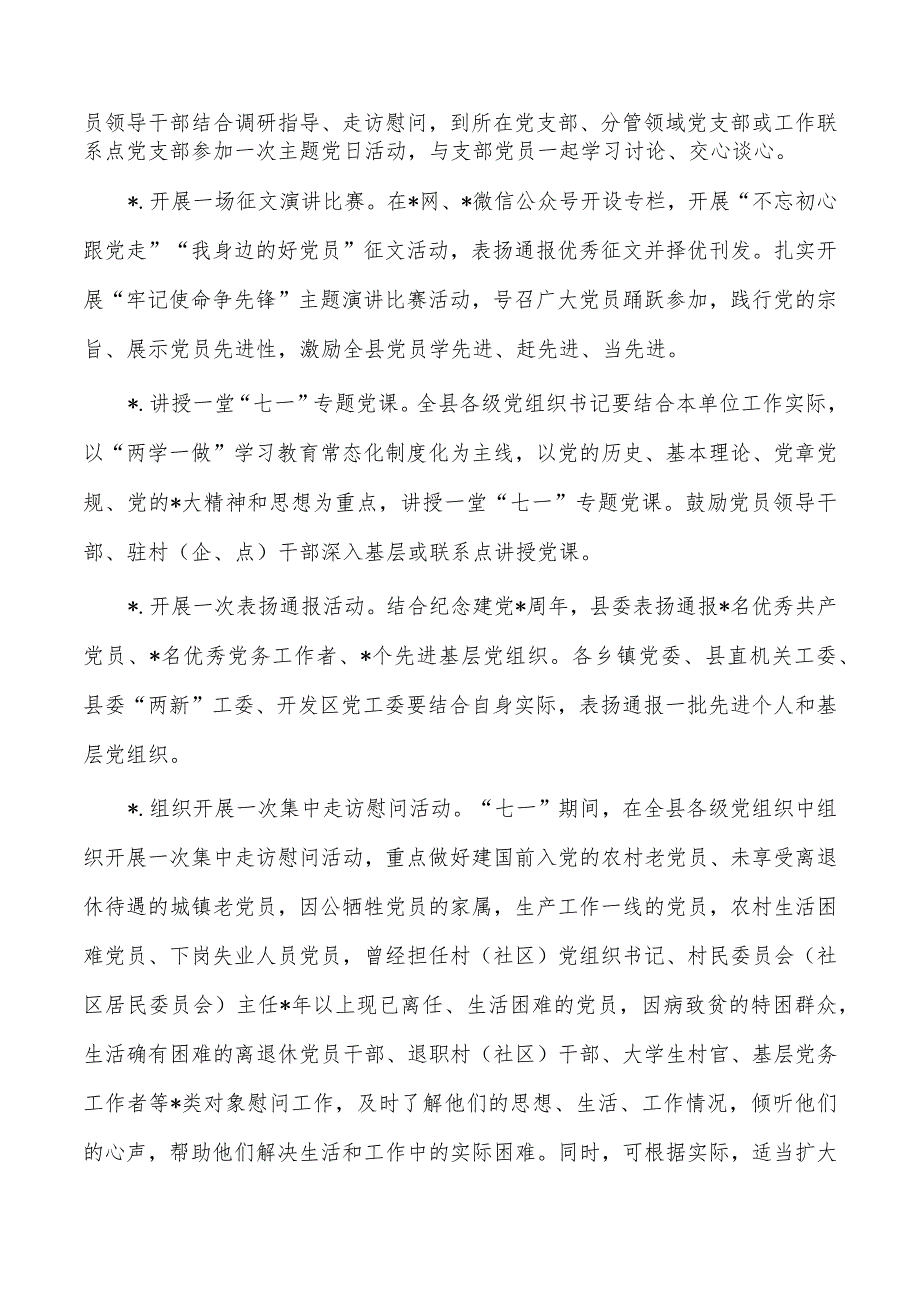 员领导干部结合调研指导、走访慰问，到所在党支部、分管领域党支部或工作联
系点党支部参加一次主题党日活动，与支部党员一起学习讨论、交心谈心。
*.开展一场征文演讲比赛。在*网、*微信公众号开设专栏，开展“不忘初心
跟党走”“我身边的好党员”征文活动，表扬通报优秀征文并择优刊发。扎实开
展“牢记使命争先锋”主题演讲比赛活动，号召广大党员踊跃参加，践行党的宗
旨、展示党员先进性，激励全县党员学先进、赶先进、当先进。
*.讲授一堂“七一”专题党课。全县各级党组织书记要结合本单位工作实际，
以“两学一做”学习教育常态化制度化为主线，以党的历史、基本理论、党章党
规、党的*大精神和思想为重点，讲授一堂“七一”专题党课。鼓励党员领导干
部、驻村（企、点）干部深入基层或联系点讲授党课。
*.开展一次表扬通报活动。结合纪念建党*周年，县委表扬通报*名优秀共产
党员、*名优秀党务工作者、*个先进基层党组织。各乡镇党委、县直机关工委、
县委“两新”工委、开发区党工委要结合自身实际，表扬通报一批先进个人和基
层党组织。
*.组织开展一次集中走访慰问活动。“七一”期间，在全县各级党组织中组
织开展一次集中走访慰问活动，重点做好建国前入党的农村老党员、未享受离退
休待遇的城镇老党员，因公牺牲党员的家属，生产工作一线的党员，农村生活困
难党员、下岗失业人员党员，曾经担任村（社区）党组织书记、村民委员会（社
区居民委员会）主任*年以上现已离任、生活困难的党员，因病致贫的特困群众，
生活确有困难的离退休党员干部、退职村（社区）干部、大学生村官、基层党务
工作者等*类对象慰问工作，及时了解他们的思想、生活、工作情况，倾听他们
的心声，帮助他们解决生活和工作中的实际困难。同时，可根据实际，适当扩大